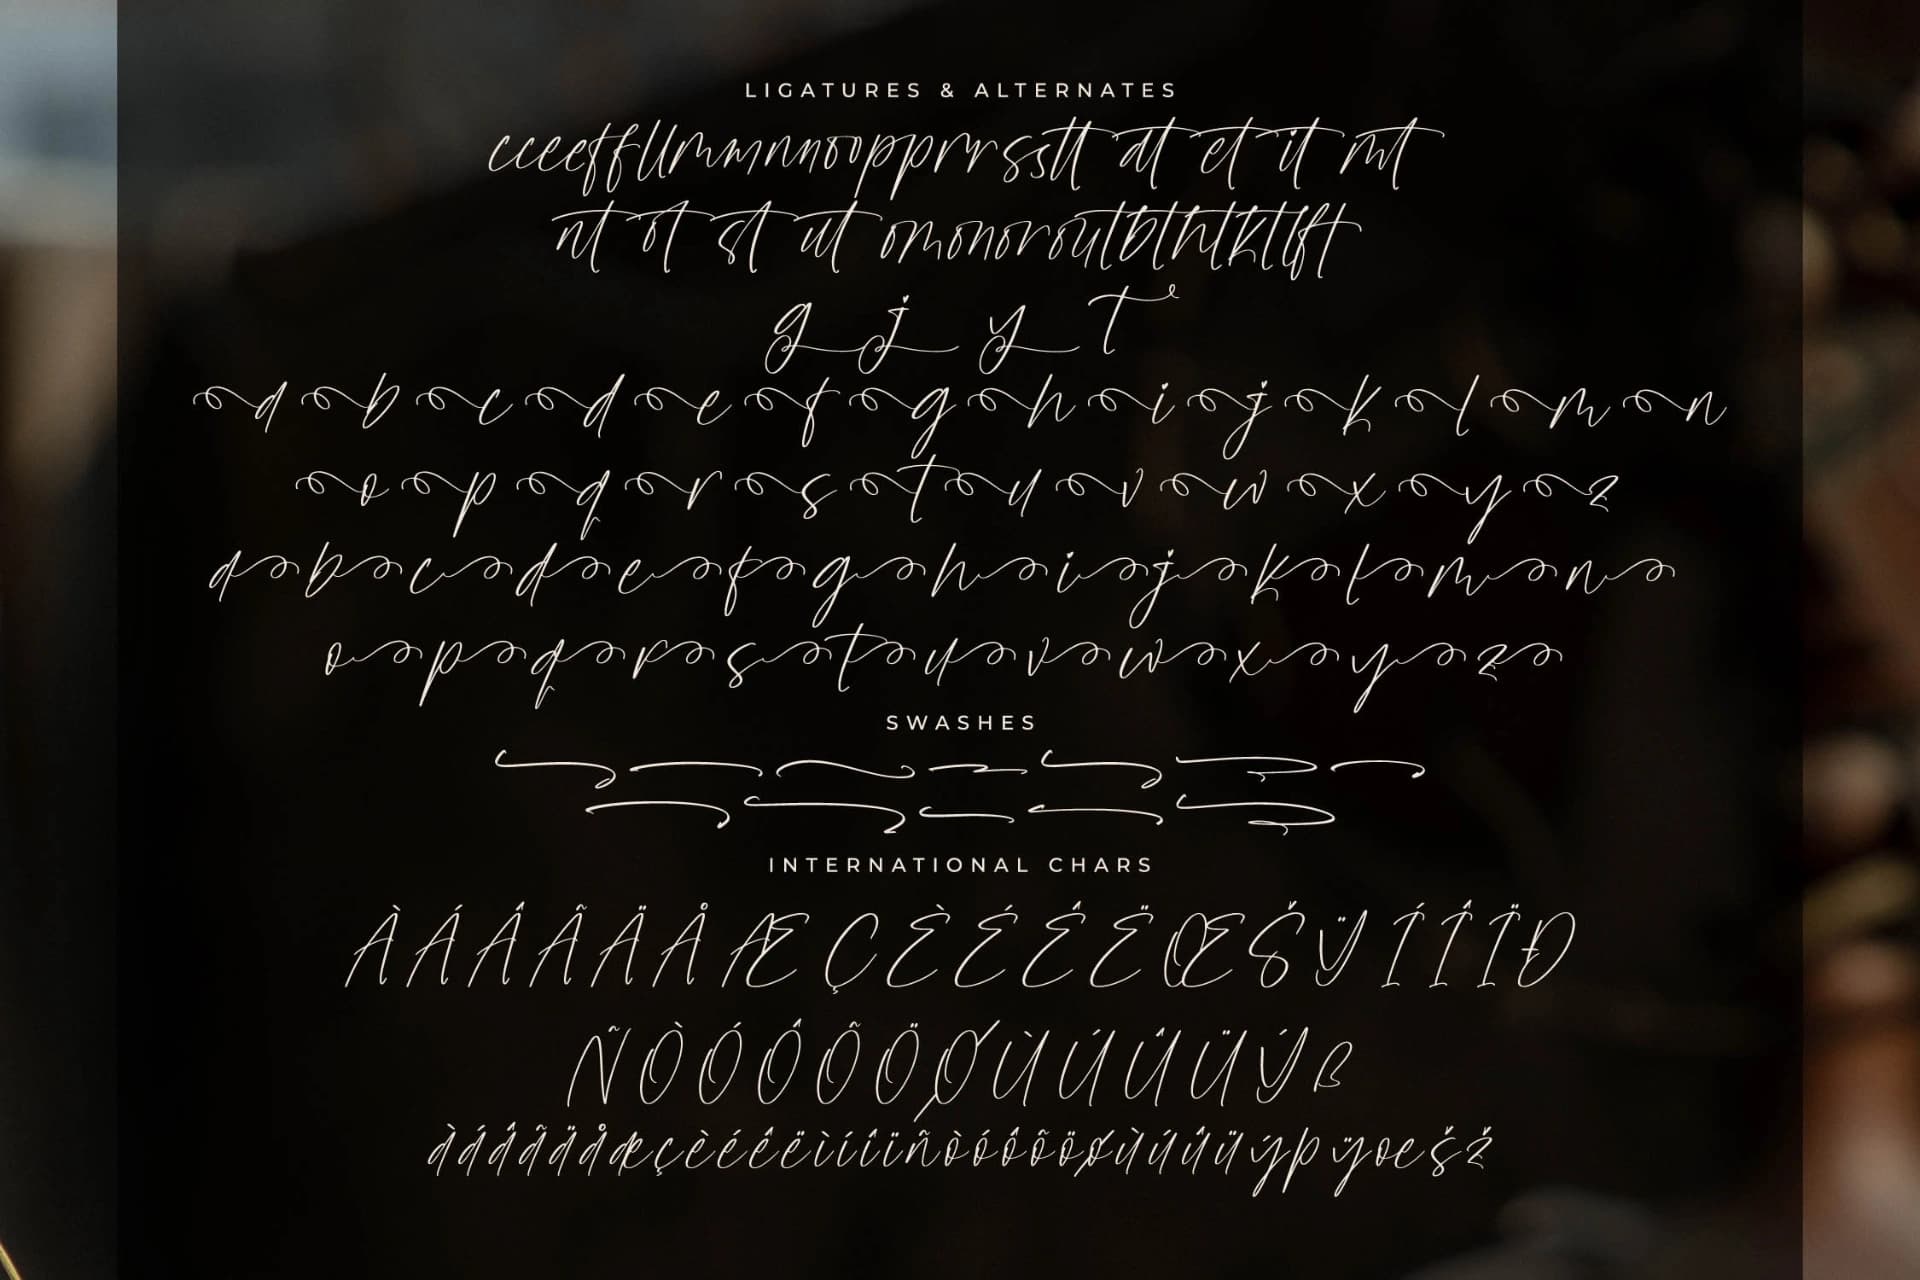 LIGATURES & ALTERNATES
cc ee ff ll mm nn oo pp rr ss tt at et it mt
nt ot st ut om on or ou tb th tk tl ft
g j y T
a b c d e f g h i j k l m n
o p q r s t u v w x y z
a b c d e f g h i j k l m n
o p q r s t u v w x y z
SWASHES
INTERNATIONAL CHARS
ÀÁÂÃÄÅÆÇÈÉÊËŒŠŸÍÎÏÐ
ÑÒÓÔÕÖØÙÚÛÜÝß
àáâãäåæçèéêëìíîïñòóôõöøùúûüýþÿœšž